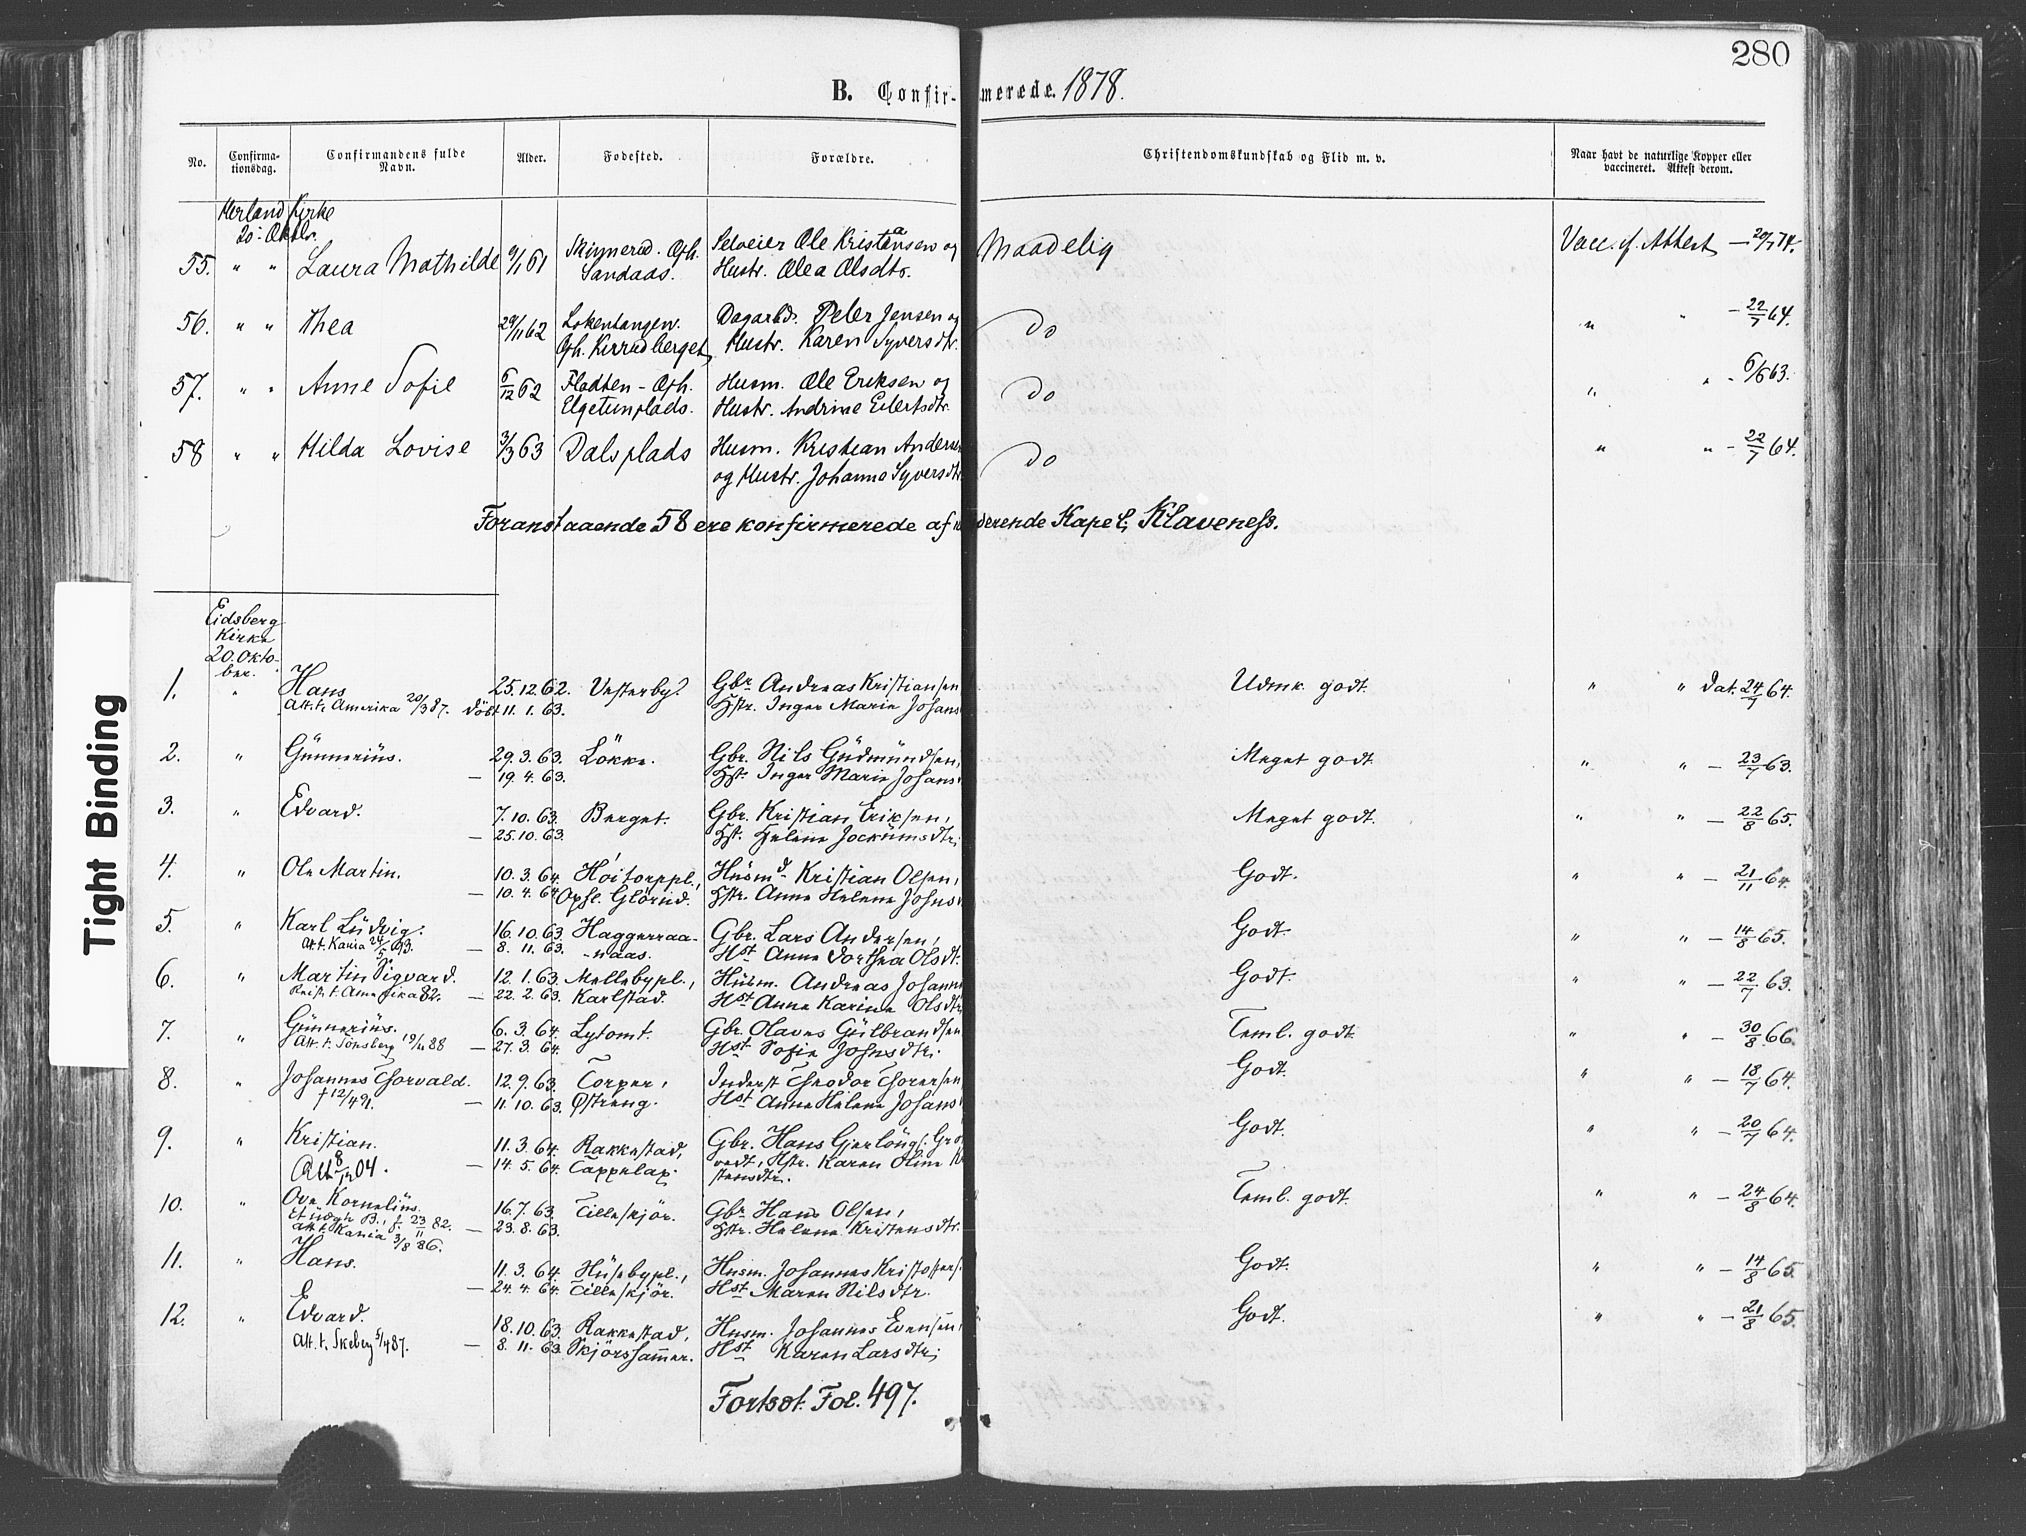 280
B. Confir-merede. 1878.
No. Confirma-tionsdag. Confirmandens fulde Navn. Alder. Fødested. Forældre. Christendomskundskab og Flid m. v. Naar havt de naturlige Kopper eller vaccineret. Attest derom.
Herland Kirke
20: Oktbr.
55. " " Laura Mathilde 9/1 61 Skinnerud. Oph. Selveier Ole Kristiansen og Maadelig Vacc. if. Attest — 20/7 74.
Sandaas. Hustr. Olea Olsdtr.
56. " " Thea 29/11 62 Lokentangen. Dagarbd. Peter Jensen og do " " — 22/7 64.
Oph. Kirrudberget Hustr. Karen Syversdtr.
57. " " Anne Sofie 6/12 62 Fladten - Oph. Husm. Ole Eriksen og do " " - 6/6 63.
Elgetunplads. Hustr. Andrine Eilertsdtr.
58 " " Hilda Lovise 3/3 63 Dalsplads Husm. Kristian Anders do " " - 22/7 64.
og Hustr. Johanne Syversdtr
Foranstaaende 58 ere konfirmerede af derende Kapel. Klaveness.
Eidsberg
Kirke
20. Okto-
ber.
1. " Hans 25. 12. 62. Vesterby. Gbr. Andreas Kristiansen Udmk. godt. " " dat. 24/7 64.
Att. t. Amerika 20/3 87. döbt 11. 1. 63. Hstr. Inger Marie Johans
2. " Günnerius. 29. 3. 63. Lökke. Gbr. Nils Gudmundsen, Meget godt " " — 23/7 63.
— 19. 4. 63. Hst. Inger Marie Johans
3. " Edvard. 7. 10. 63. Berget. Gbr. Kristian Eriksen, Meget godt. " " — 22/8 65.
— 25. 10. 63. Hst. Helene Jockumsdtr;
4. " Ole Martin. 10. 3. 64. Höitorppl., Husmd. Kristian Olsen, Godt. " " — 21/11 64.
— 10. 4. 64 Opf. Glörud. Hstr. Anne Helene Johns
5. " Karl Ludvig. 16. 10. 63. Haggerraa- Gbr. Lars Andersen, Godt. " " — 14/8 65.
Att. Kania 24/5 93. — 8. 11. 63. -naas. Hst Anne Dorthea Olsdt.
6. " Martin Sigvard. 12. 1. 63. Mellebypl., Husm. Andreas Johann Godt. " " — 22/7 63.
Reist t. Amerika 82. — 22. 2. 63. Karlstad. Hst Anne Karine Olsdtr
7. " Günnerius. 6. 3. 64. Lytomt. Gbr. Olaves Gulbrandsen Teml. godt. " " — 30/8 66
Att. t. Tönsberg 19/11 88 — 27. 3. 64. Hst Sofie Johnsdtr;
8. " Johannes Thorvald. 12. 9. 63. Torper, Inderst Theodor Thoresen Godt. " " — 18/7 64.
† 12/4 91. — 11. 10. 63. Østreng. Hst Anne Helene Johans
9. " Kristian. 11. 3. 64. Rakkestad, Gbr. Hans Gjerlöugs. Gr Godt. " " — 20/7 64.
Att 8/12 04. — 14. 5. 64. Tappelax. vedt, Hstr. Karen Oline
stensdtr.
10. " Ove Kornelius. 16. 7. 63. Tilleskjör. Gbr. Hans Olsen, Teml. godt. " " — 24/8 64.
23/11 82. — 23. 8. 63. Hstr. Helene Kristensdtr.
Att. Kania 3/8 86.
11. " Hans. 11. 3. 64. Husebypl., Husm. Johannes Kristoffers. Godt. " " — 14/8 65
— 24. 4. 64. Tilleskjör. Hst Maren Nilsdtr.
12. " Edvard. 18. 10. 63. Rakkestad, Husm. Johannes Evensen, Godt. " " — 21/8 65.
Att. t. Skeberg 5/4 87. — 8. 11. 63 Skjörshammer. Hst Karen Larsdtr;
Fortsat. Fol. 497.
Tight Binding